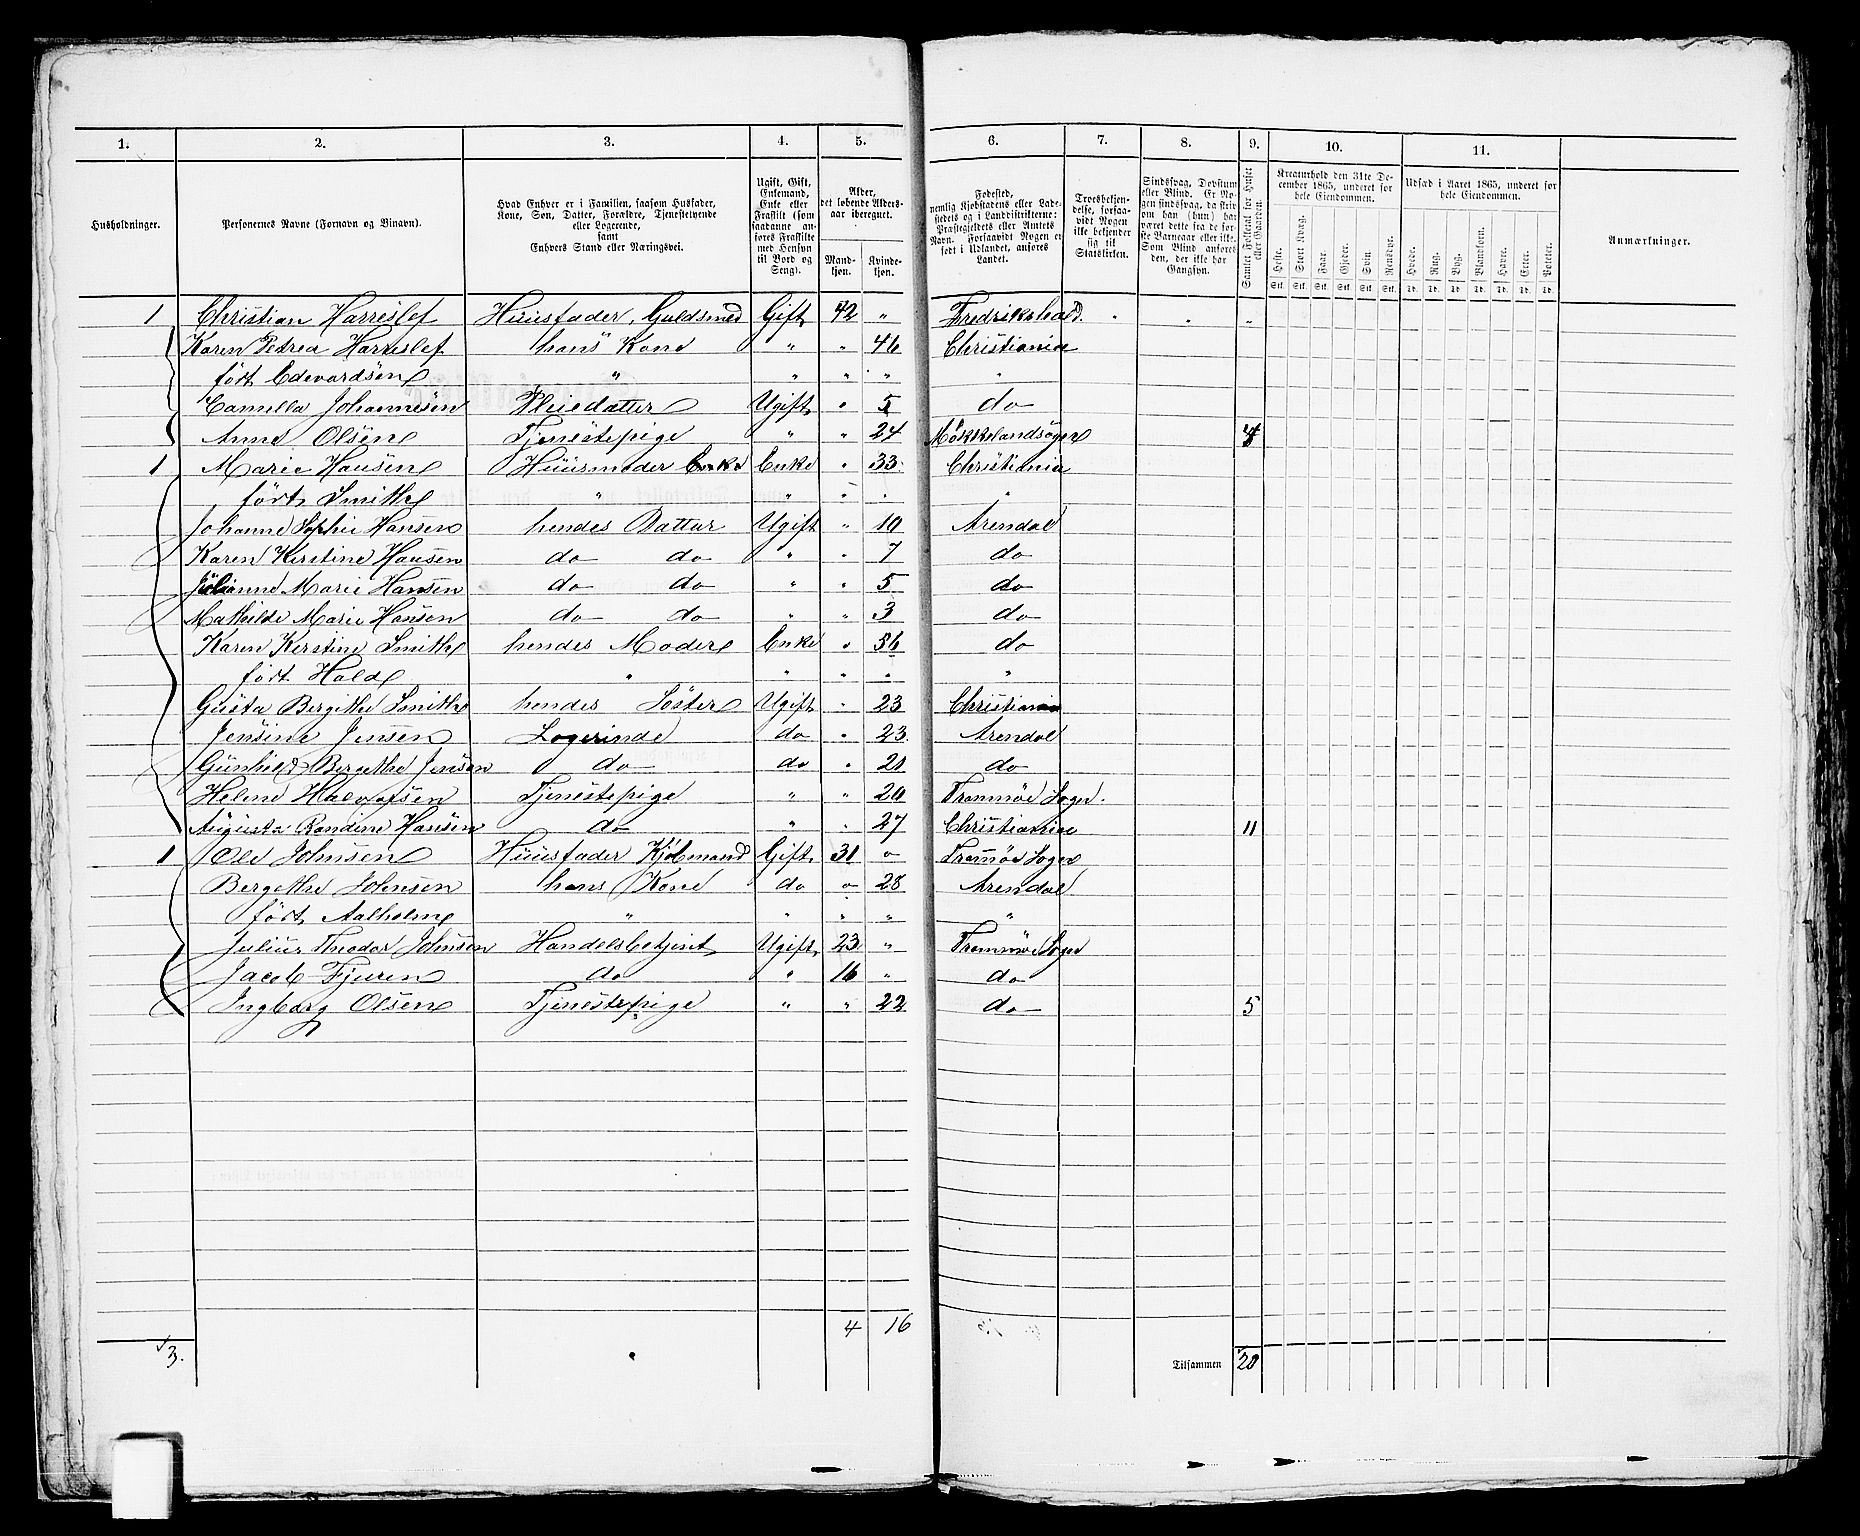 1. 2. 3. 4. 5. 6. 7. 8. 9. 10. 11.
Husholdninger.
Personernes Navne (Fornavn og Binavn).
Hvad Enhver er i Familien, saasom Husfader, Kone, Søn, Datter, Forældre, Tjenestetyende eller Logerende, samt Enhvers Stand eller Næringsvei.
Ugift, Gift, Enkemand, Enke eller Fraskilt (som saadanne anføres Fraskilte med Hensyn til Bord og Seng).
Alder, det løbende Aldersaar iberegnet.
Mandkjøn. Kvindekjøn.
Fødested, nemlig Kjøbstadens eller Ladestedets og i Landdistrikterne: Præstegjeldets eller Amtets Navn. Forsaavidt Nogen er født i Udlandet, anføres Landet.
Troesbekjendelse, forsaavidt Nogen ikke bekjender sig til Statskirken.
Sindssvag, Døvstum eller Blind. Er Nogen sindssvag, da skrives om han (hun) har været dette fra de første Barneaar eller ikke. Som Blind anføres den, der ikke har Gangsyn.
Samlet Folketal for Huset eller Gaarden.
Kreaturhold den 31te December 1865, underet for hele Eiendommen.
Heste. Stort Kvæg. Faar. Gjeder. Svin. Rensdyr.
Stk. Stk. Stk. Stk. Stk. Stk.
Udsæd i Aaret 1865, underet for hele Eiendommen.
Hvede. Rug. Byg. Blandkorn. Havre. Erter. Poteter.
Td. Td. Td. Td. Td. Td. Td.
Anmærkninger.
1 Christian Harreslef Huusfader, Guldsmed Gift 42 " Fredrikshald.
Karen Petrea Harreslef hans Kone " " 46 Christiania
født Edevardsen " " " " "
Camella Johannesen Pleiedatter Ugift " 5 do
Anne Olsen Tjenestepige " " 24 Møkkelandsogen 4
1 Marie Hansen Huusmoder Enke Enke " 33 Christiania
født Smith " " " "
Johanne Sophie Hansen hendes Dattur Ugift " 10 Arendal
Karen Kirstine Hansen do do " " 7 do
Marie Hansen do do " " 5 do
Mathilde Marie Hansen do do " " 3 do
Karen Kirstine Smith hendes Moder Enke " 56 do
født Hald " " " " "
Gusta Bergithe Smith hendes Søster Ugift " 23 Christiania
Jensine Jensen Logerinde do " 23. Arendal
Gunhild Bergethe Jensen do do " 21 do
Helene Halvorsen Tjenestepige " " 20 Trommøe Sogn.
Augusta Randine Hansen do " " 27 Christiania 11
1 Ole Johnsen Huusfader Kjøbmand Gift 31 " Tromøe Sogn
Bergethe Johnsen hans Kone do " 28 Arendal
født Aalholm " " " " "
Julius Theodor Johnsen Handelsbetjent Ugift 23 " Trommøe Sogn
Jacob Fjuren do " 16 " do
Ingborg Olsen Tjenestepige " " 22 do 5
4 16
3. Tilsammen 20